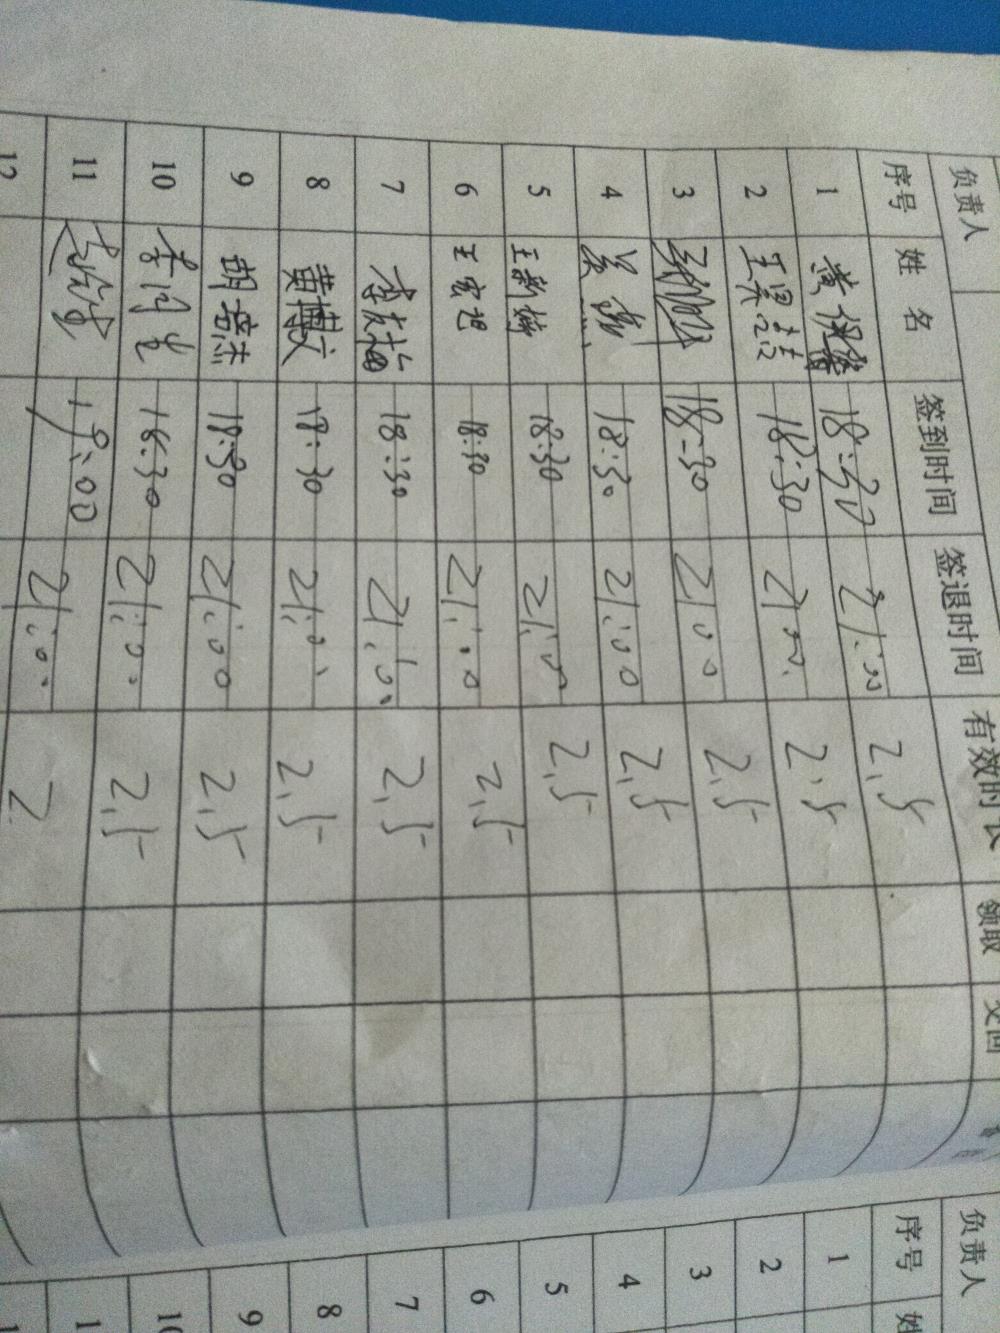 负责人
序号 姓名 签到时间 签退时间 有效时长 领取 交回
1 黄保 18:30 21:00 2.5
2 王 18:30 21:00 2.5
3 18:30 21:00 2.5
4 吴 18:30 21:00 2.5
5 王新 18:30 21:00 2.5
6 王宏旭 18:30 21:00 2.5
7 李 18:30 21:00 2.5
8 黄博文 18:30 21:00 2.5
9 胡 18:30 21:00 2.5
10 李 18:30 21:00 2.5
11 19:00 21:00 2
12
负责人
序号 姓
1
2
3
4
5
6
7
8
9
10